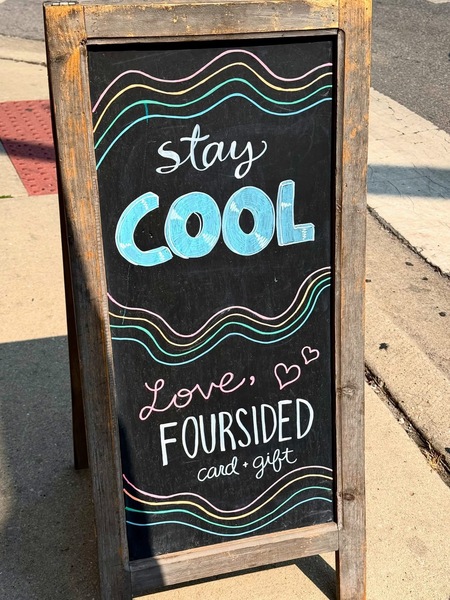 stay
COOL
Love,
FOURSIDED
card + gift